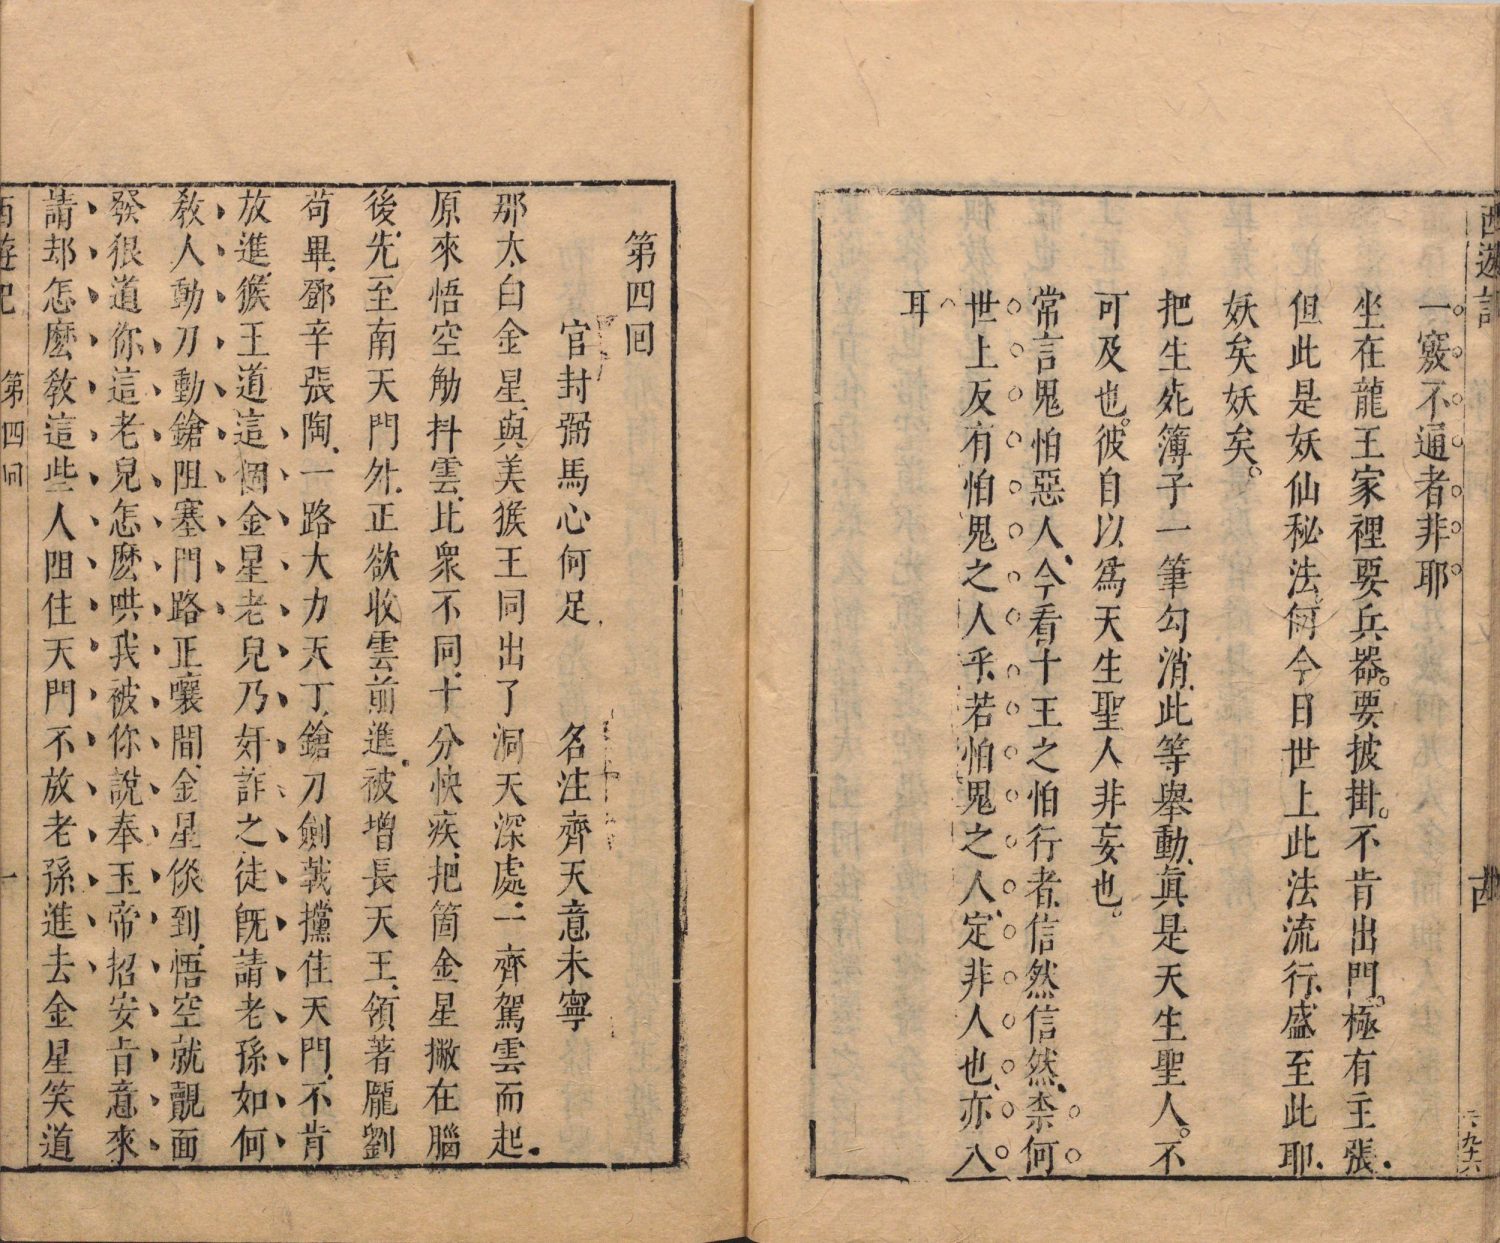 西遊記
一竅不通者非耶
坐在龍王家裡要兵器要披掛不肯出門極有主張
但此是妖仙秘法何今日世上此法流行盛至此耶
妖矣妖矣
把生死簿子一筆勾消此等舉動眞是天生聖人不
可及也彼自以爲天生聖人非妄也
常言鬼怕惡人今看十王之怕行者信然信然柰何
世上反有怕鬼之人乎若怕鬼之人定非人也亦八
耳
第四囘
官封弼馬心何足 名注齊天意未寧
那太白金星與美猴王同出了洞天深處一齊駕雲而起
原來悟空觔抖雲比衆不同十分快疾把箇金星撇在腦
後先至南天門外正欲收雲前進被增長天王領著龐劉
苟畢鄧辛張陶一路大力天丁鎗刀劍戟攩住天門不肯
放進猴王道這個金星老兒乃奸詐之徒旣請老孫如何
敎人動刀動鎗阻塞門路正嚷間金星倐到悟空就覿面
發狠道你這老兒怎麽哄我被你說奉玉帝招安旨意來
請却怎麽敎這些人阻住天門不放老孫進去金星笑道
西遊記 第四囘 一